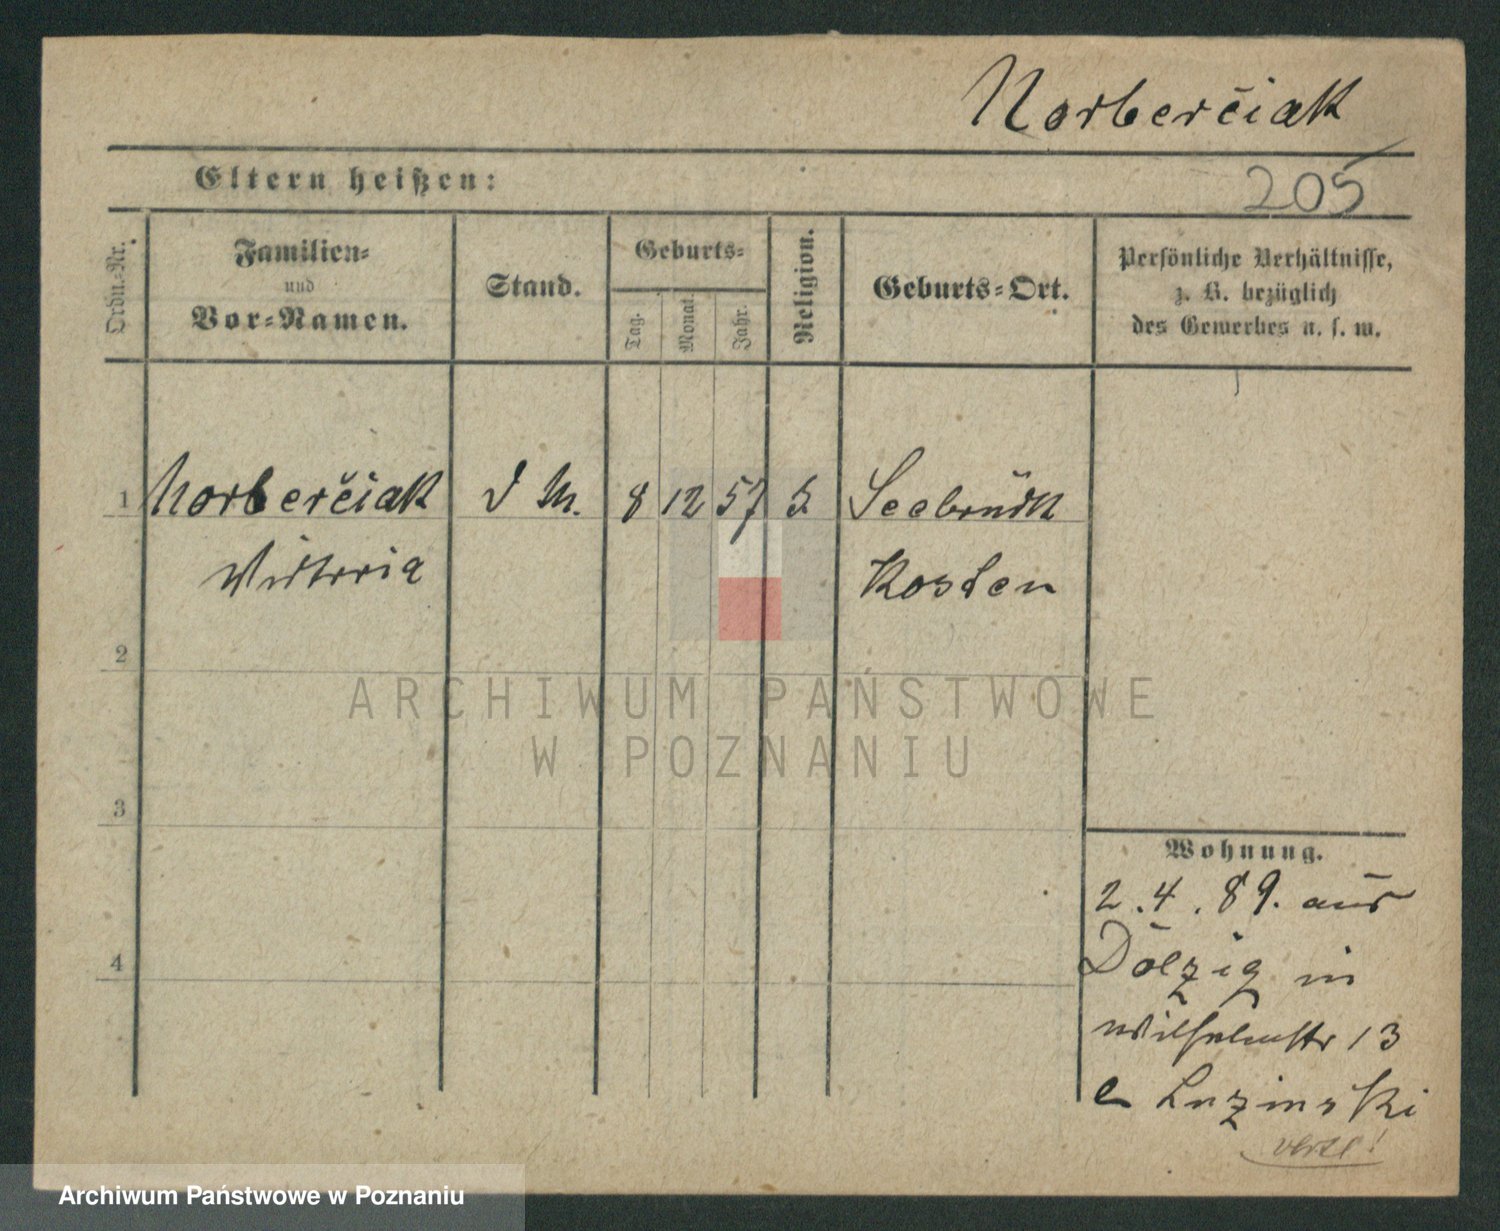 Norberčiak
Eltern heißen:
205
Ordn.-Nr.
Familien-
und
Vor-Namen.
Stand.
Geburts-
Tag.
Monat.
Jahr.
Religion.
Geburts-Ort.
Persönliche Verhältnisse,
z. B. bezüglich
des Gewerbes u. s. w.
1 Norberčiak D M. 8 12 57 Seebrück
Viktoria Kosten
2
3
4
ARCHIWUM PAŃSTWOWE
W POZNANIU
Wohnung.
2.4.89. aus
Dolzig in
Wilhelmstr 13
Luzinski
Archiwum Państwowe w Poznaniu